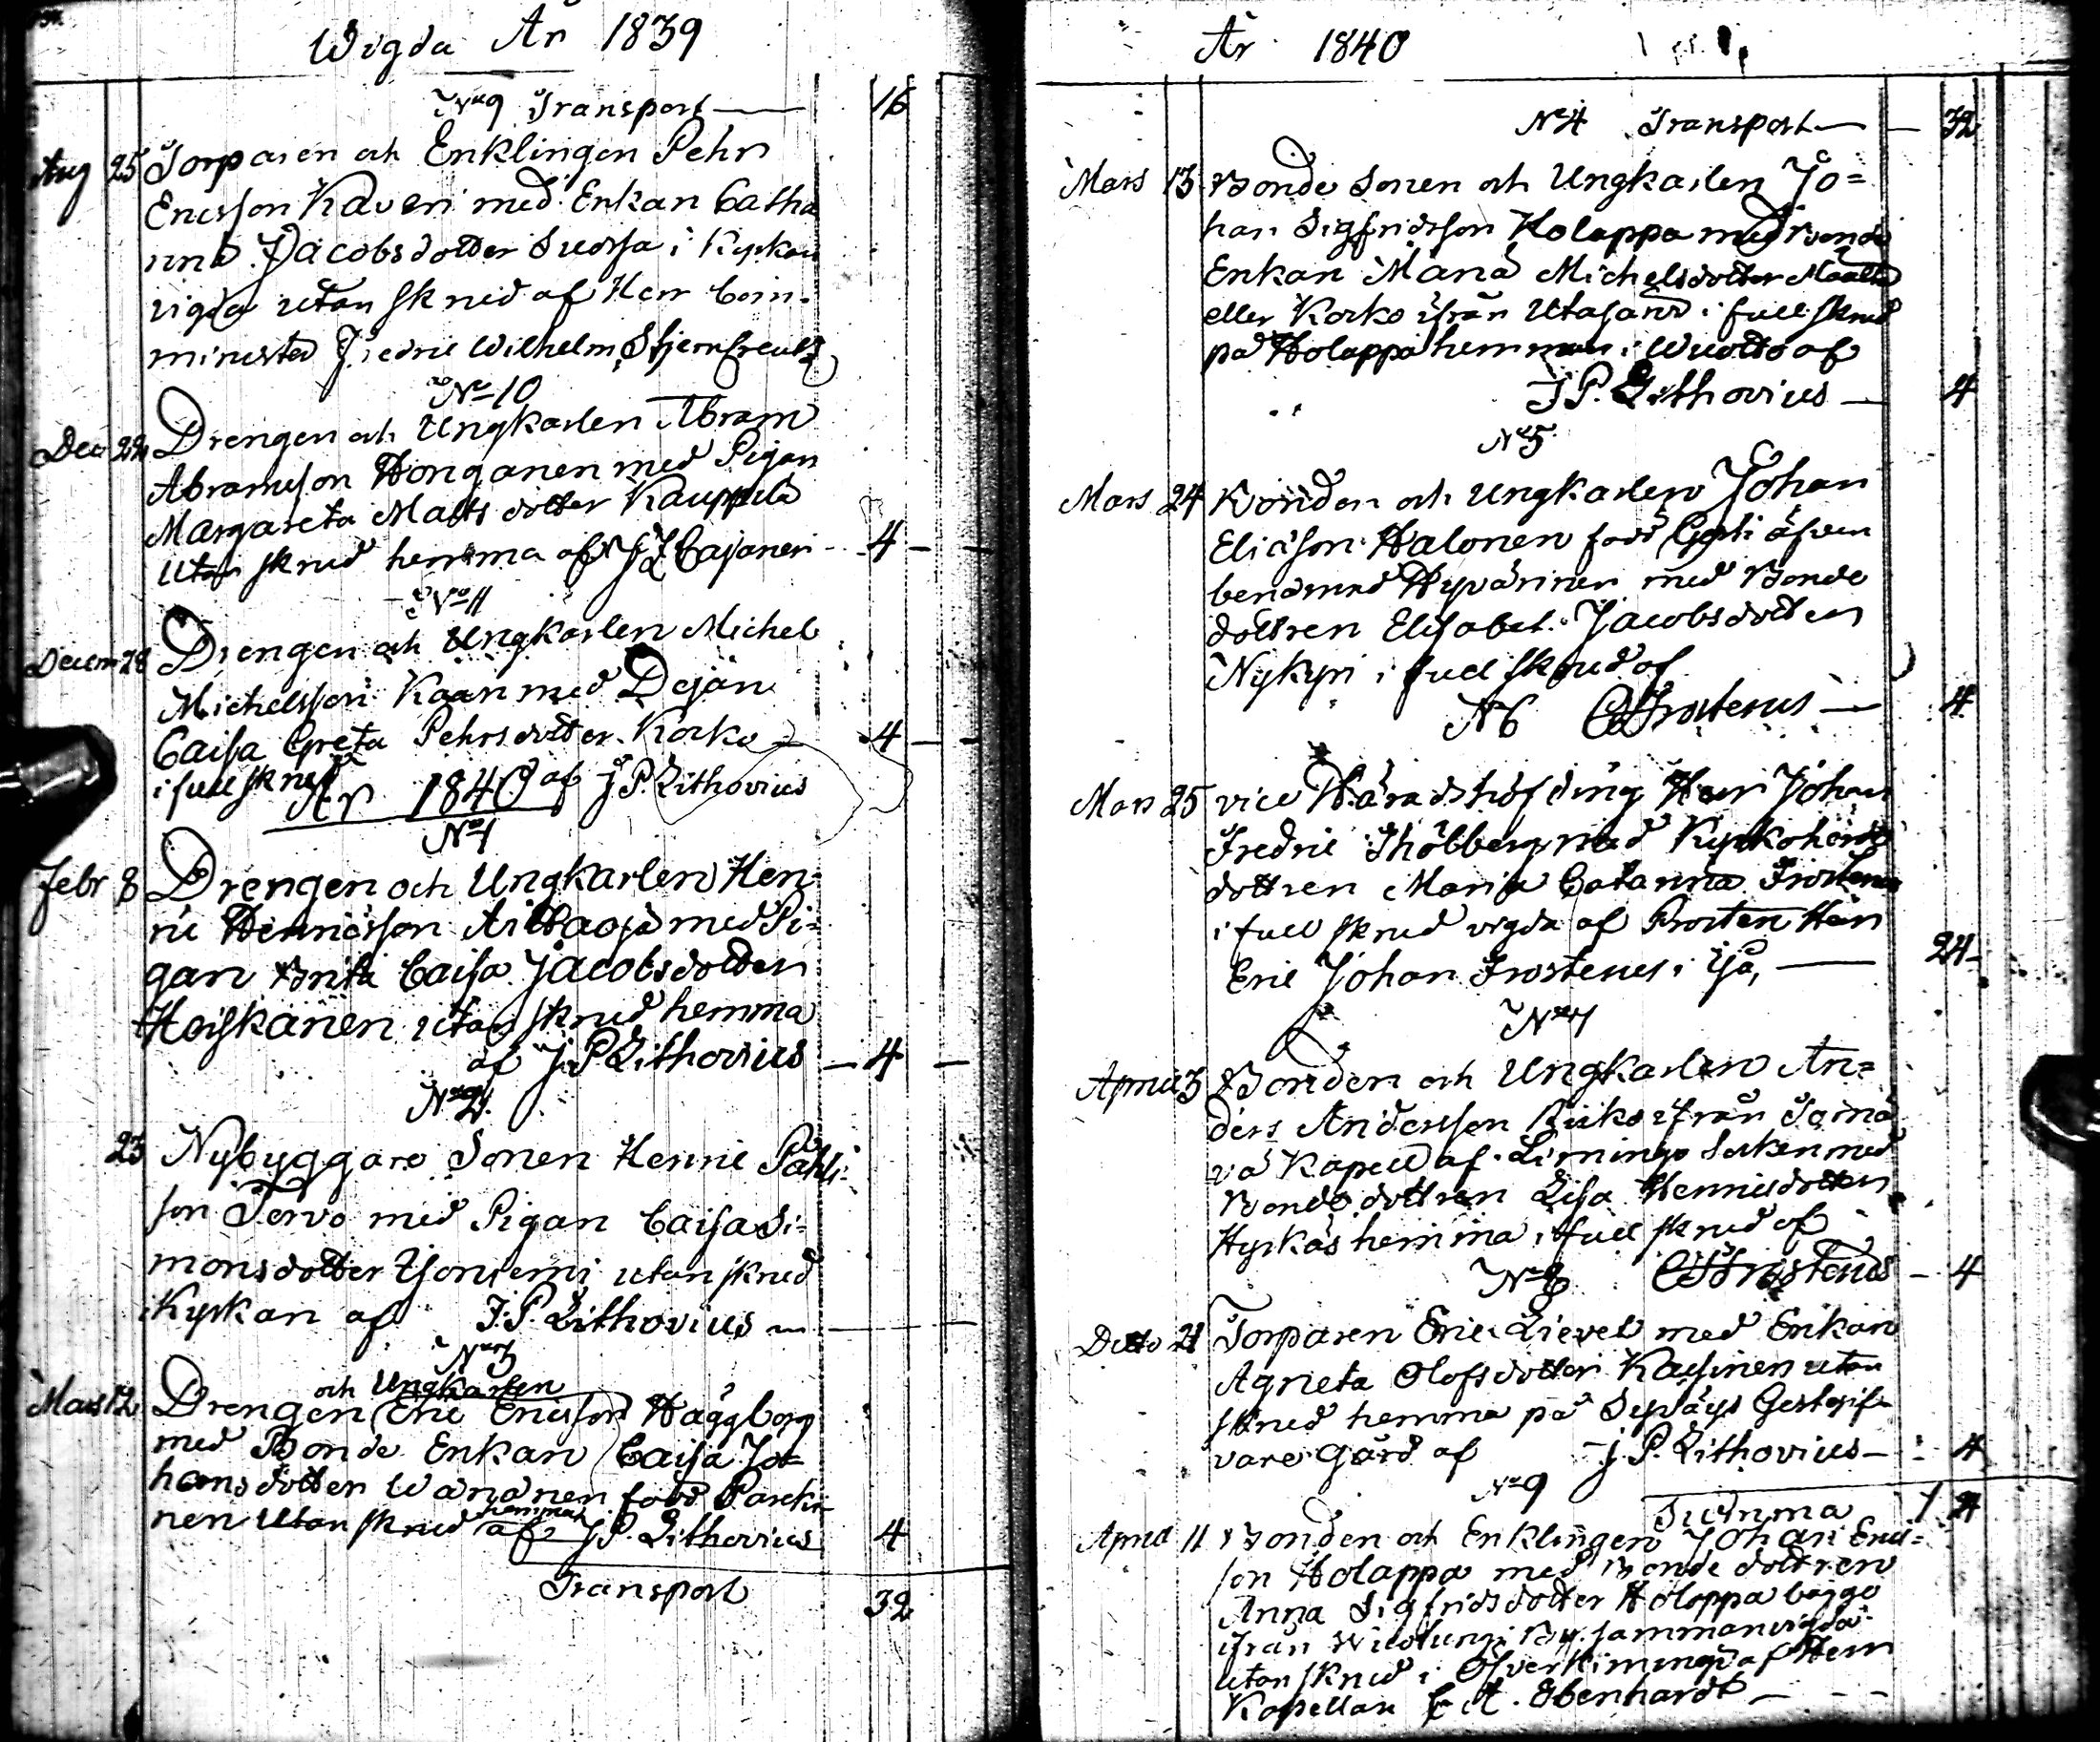 Wigda År 1839
No 9 Transport — 16
Aug 25 Torparen och Enklingen Pehr
Ericsson Kaveri med Enkan Catha
rina Jacobsdotter Suossa i Kyrkan
vigda utan skrud af Herr Com-
minister Fredric Wilhelm Stjerncreutz
No 10
Dec 22 Drengen och Ungkarlen Abram
Abramsson Honganen med Pigan
Margareta Matts dotter Kauppila
utan skrud hemma af J J Cajanen — 4 —
No 11
Decem 28 Drengen och Ungkarlen Michel
Michelsson Kään med Dejan
Caisa Greta Pehrsdotter Korko — 4 —
i full skrud af J. P. Lithovius
År 1840
No 1
Febr 8 Drengen och Ungkarlen Hen-
ric Henricsson med Pi-
gan Brita Caisa Jacobsdotter
Hoiskanen utan skrud hemma
af J. P Lithovius — 4 —
No 2
23 Nybyggare Sonen Henric Påhls-
son Tervo med Pigan Caisa Si-
monsdotter Yoniemi utan skrud
i Kyrkan af J. P. Lithovius —
No 3
och Ungkarlen
Mars 12 Drengen Eric Ericsson Häggborg
med Bonde Enkan Caisa Jo-
hansdotter Wänänen född Parcki-
hemma
nen utan skrud af J P. Lithovius 4
Transport 32
År 1840
No 4 Transport — 32
Mars 13 Bonde Sonen och Ungkarlen Jo-
han Sigfridsson Holappa med Bonde
Enkan Maria Michelsdotter Määttä
eller Korko ifrån Utajärvi i full skrud
på Holappa hemman i Wuotto af
J P. Lithovius — 4
No 5
Mars 24 Bonden och Ungkarlen Johan
Eliasson Halonen född äfven
benämnd Hyvärinen med Bonde
dottren Elisabet Jacobsdotter
Nykyri i full skrud af
N 6 Frosterus — 4
Mars 25 vice Häradshöfding Herr Johan
Fredric Thölberg med Kyrkoherde
dottren Maria Catarina Frosterus
i full skrud vigda af Prosten Herr
Eric Johan Frosterus i Ijå, — 24
No 7
April 3 Bonden och Ungkarlen An-
ders Andersson ifrån Temme
vå Kapell af Limingo Socken med
Bondedottren Lisa Henricsdotter
Hyrkäs hemma i full skrud af
No 8 Frosterus — 4
Ditto 21 Torparen Eric Lievel med Enkan
Agneta Olofsdotter Kaisinen utan
skrud hemma på Gestgif-
vare Gård af J. P. Lithovius — 4
No 9
Summa
April 11 Bonden och Enklingen Johan Erics-
son Holappa med Bonde dottren
Anna Sigfridsdotter Holappa bägge
ifrån By sammanvigda
utan skrud i Öfverkiminge af Herr
Kapellan A. Ebenhardt —